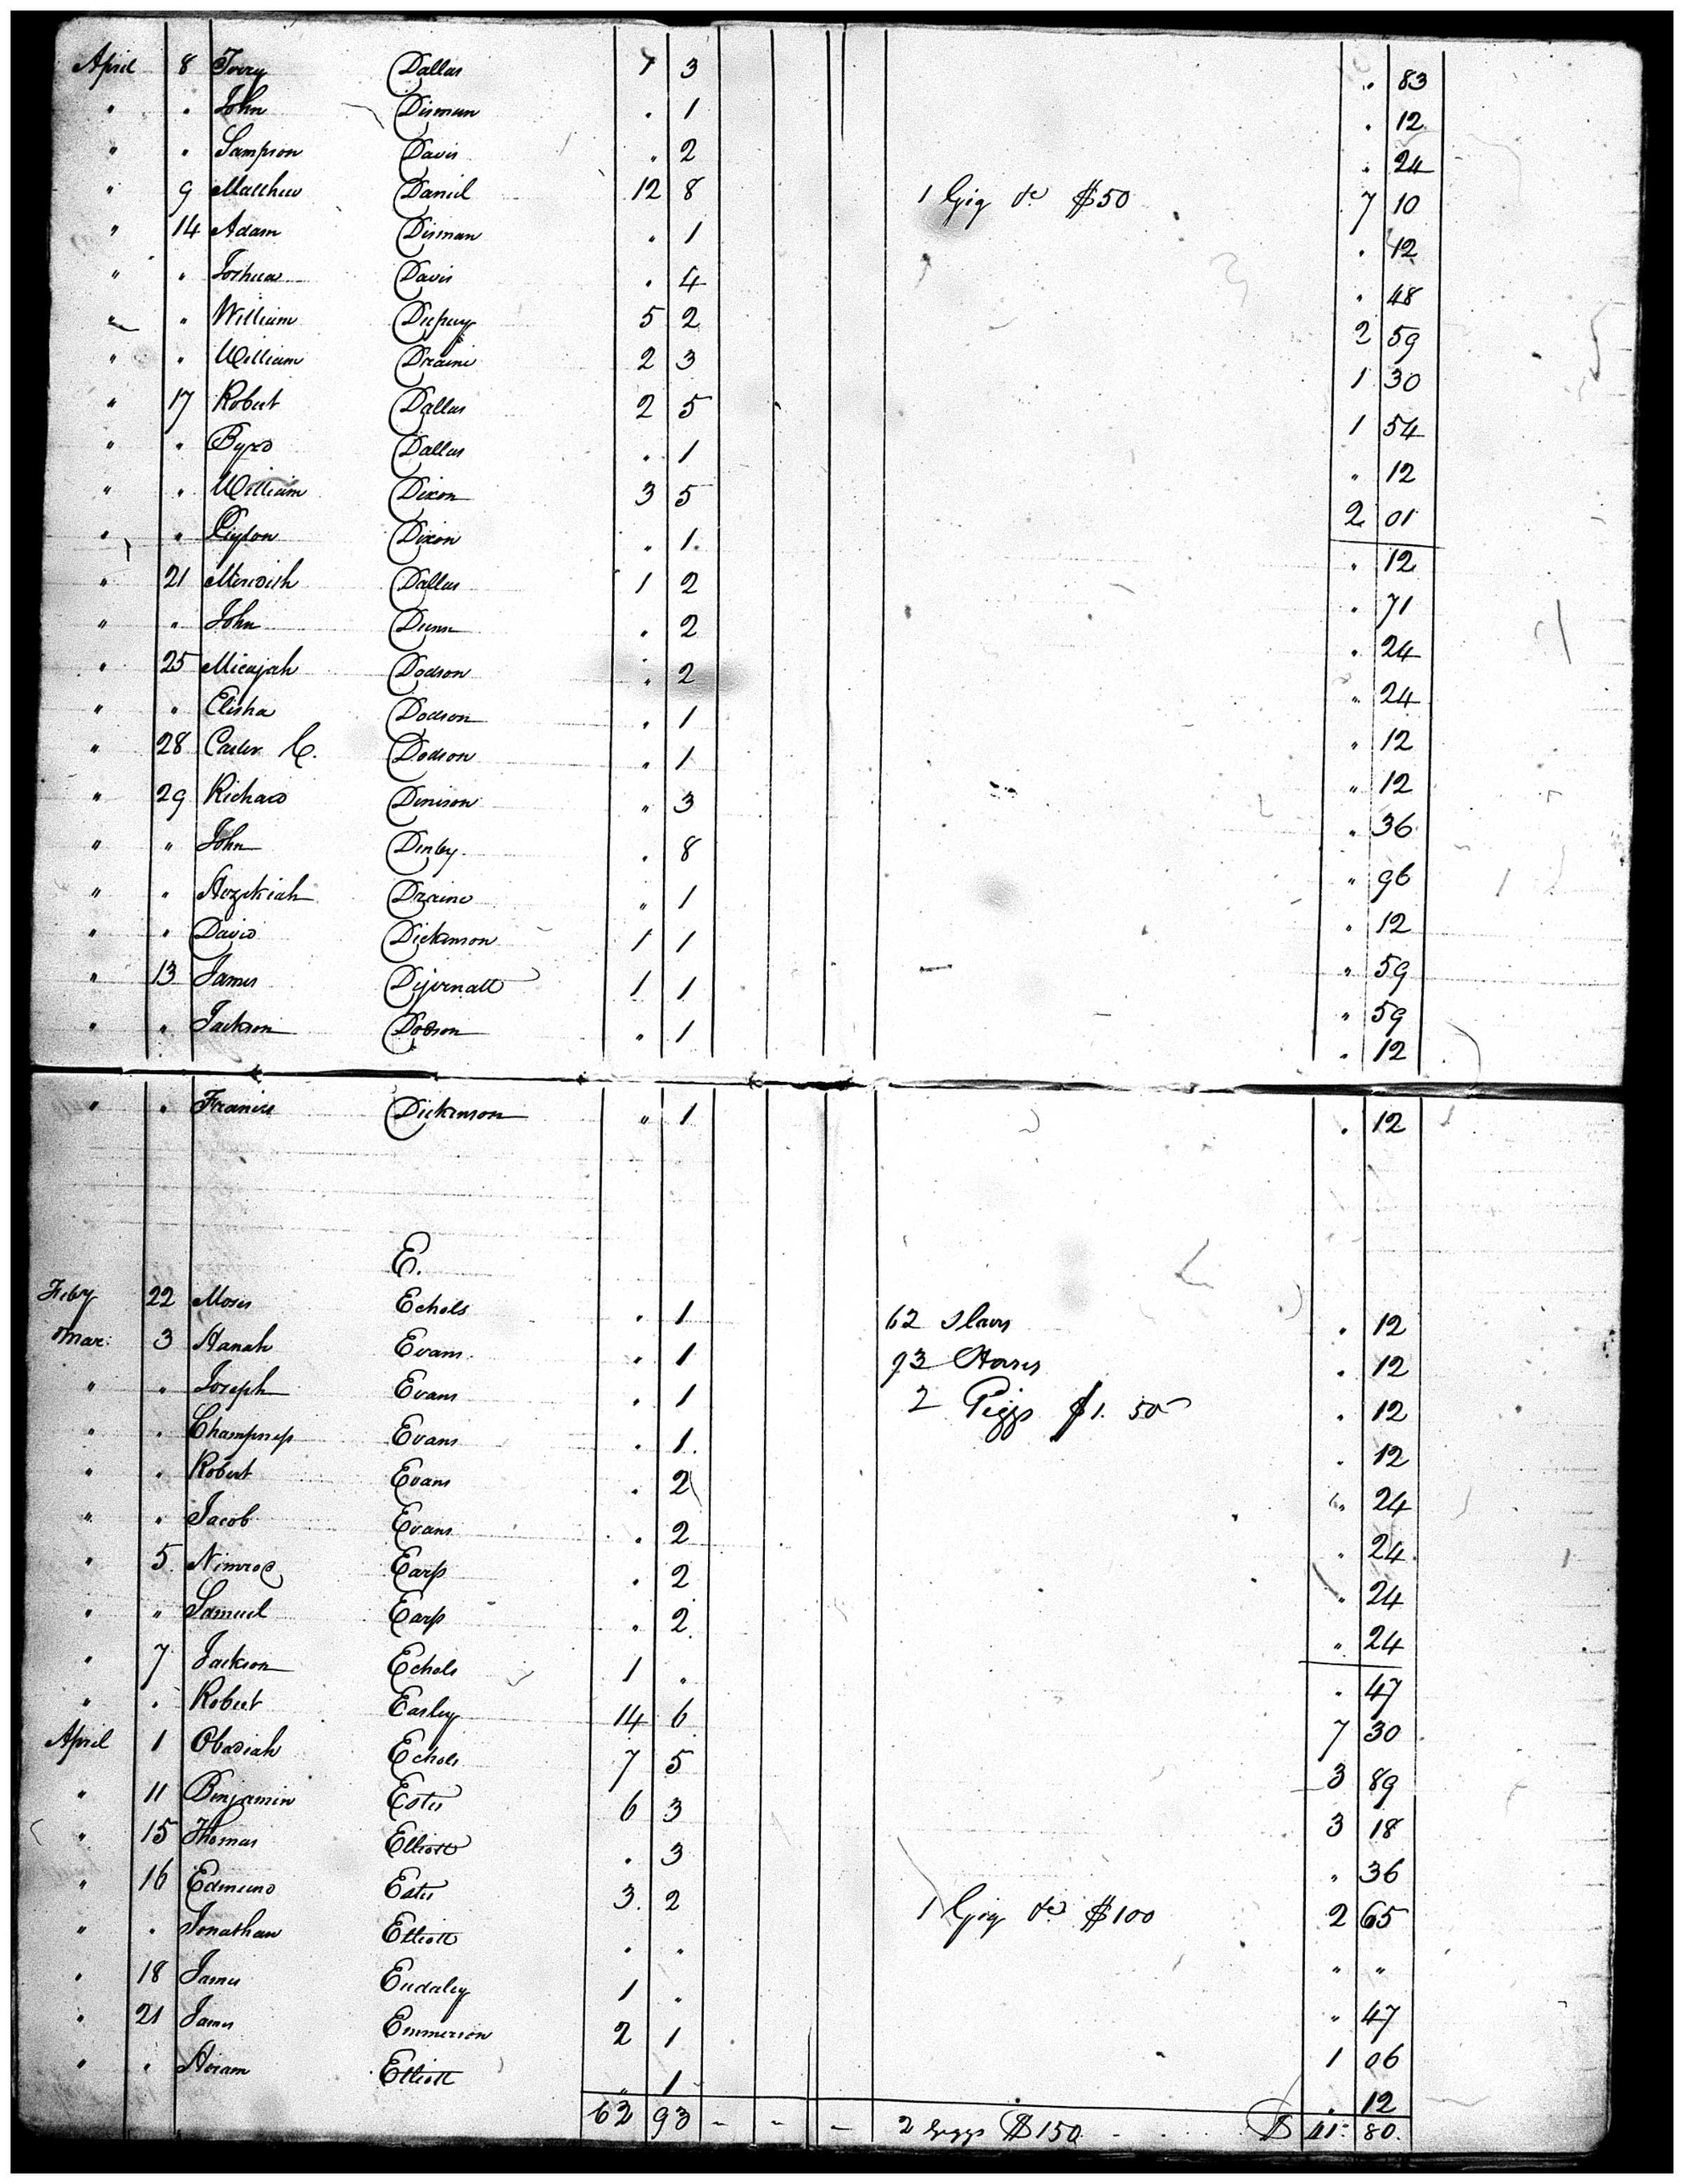 April 8 Terry Dallas 1 3 " 83
" " John Disman " 1 " 12
" " Sampson Davis " 2 " 24
" 9 Matthew Daniel 12 8 1 Gig &c $50 7 10
" 14 Adam Disman " 1 " 12
" " Joshua Davis " 4 " 48
" " William Dupuy 5 2 2 59
" " William Draine 2 3 1 30
" 17 Robert Dallas 2 5 1 54
" " Byrd Dallas " 1 " 12
" " William Dixon 3 5 2 01
" " Peyton Dixon " 1 " 12
" 21 Meredith Dallas 1 2 " 71
" " John Dunn " 2 " 24
" 25 Micajah Dodson " 2 " 24
" " Elisha Dodson " 1 " 12
" 28 Carter C. Dodson " 1 " 12
" 29 Richard Denison " 3 " 36
" " John Denby " 8 " 96
" " Hezekiah Draine " 1 " 12
" " David Dickenson 1 1 " 59
" 13 James Dejernatt 1 1 " 59
" " Jackson Dodson " 1 " 12
" " Francis Dickenson " 1 " 12
E.
Feby 22 Moses Echols " 1 62 Slaves " 12
Mar: 3 Hanah Evans " 1 93 Horses " 12
" " Joseph Evans " 1 2 Giggs $1.50 " 12
" " Champness Evans " 1 " 12
" " Robert Evans " 2 " 24
" " Jacob Evans " 2 " 24
" 5 Nimrod Earp " 2 " 24
" " Samuel Earp " 2 " 24
" 7 Jackson Echols 1 " " 47
" " Robert Easley 14 6 7 30
April 1 Obadiah Echols 7 5 3 89
" 11 Benjamin Estes 6 3 3 18
" 15 Thomas Elliott " 3 " 36
" 16 Edmund Estes 3 2 1 Gig &c $100 2 65
" " Jonathan Elliott " " " "
" 18 James Eudaley 1 " " 47
" 21 James Emmerson 2 1 1 06
" " Hiram Elliott " 1 " 12
62 93 - - - 2 Giggs $150 $ 41: 80.